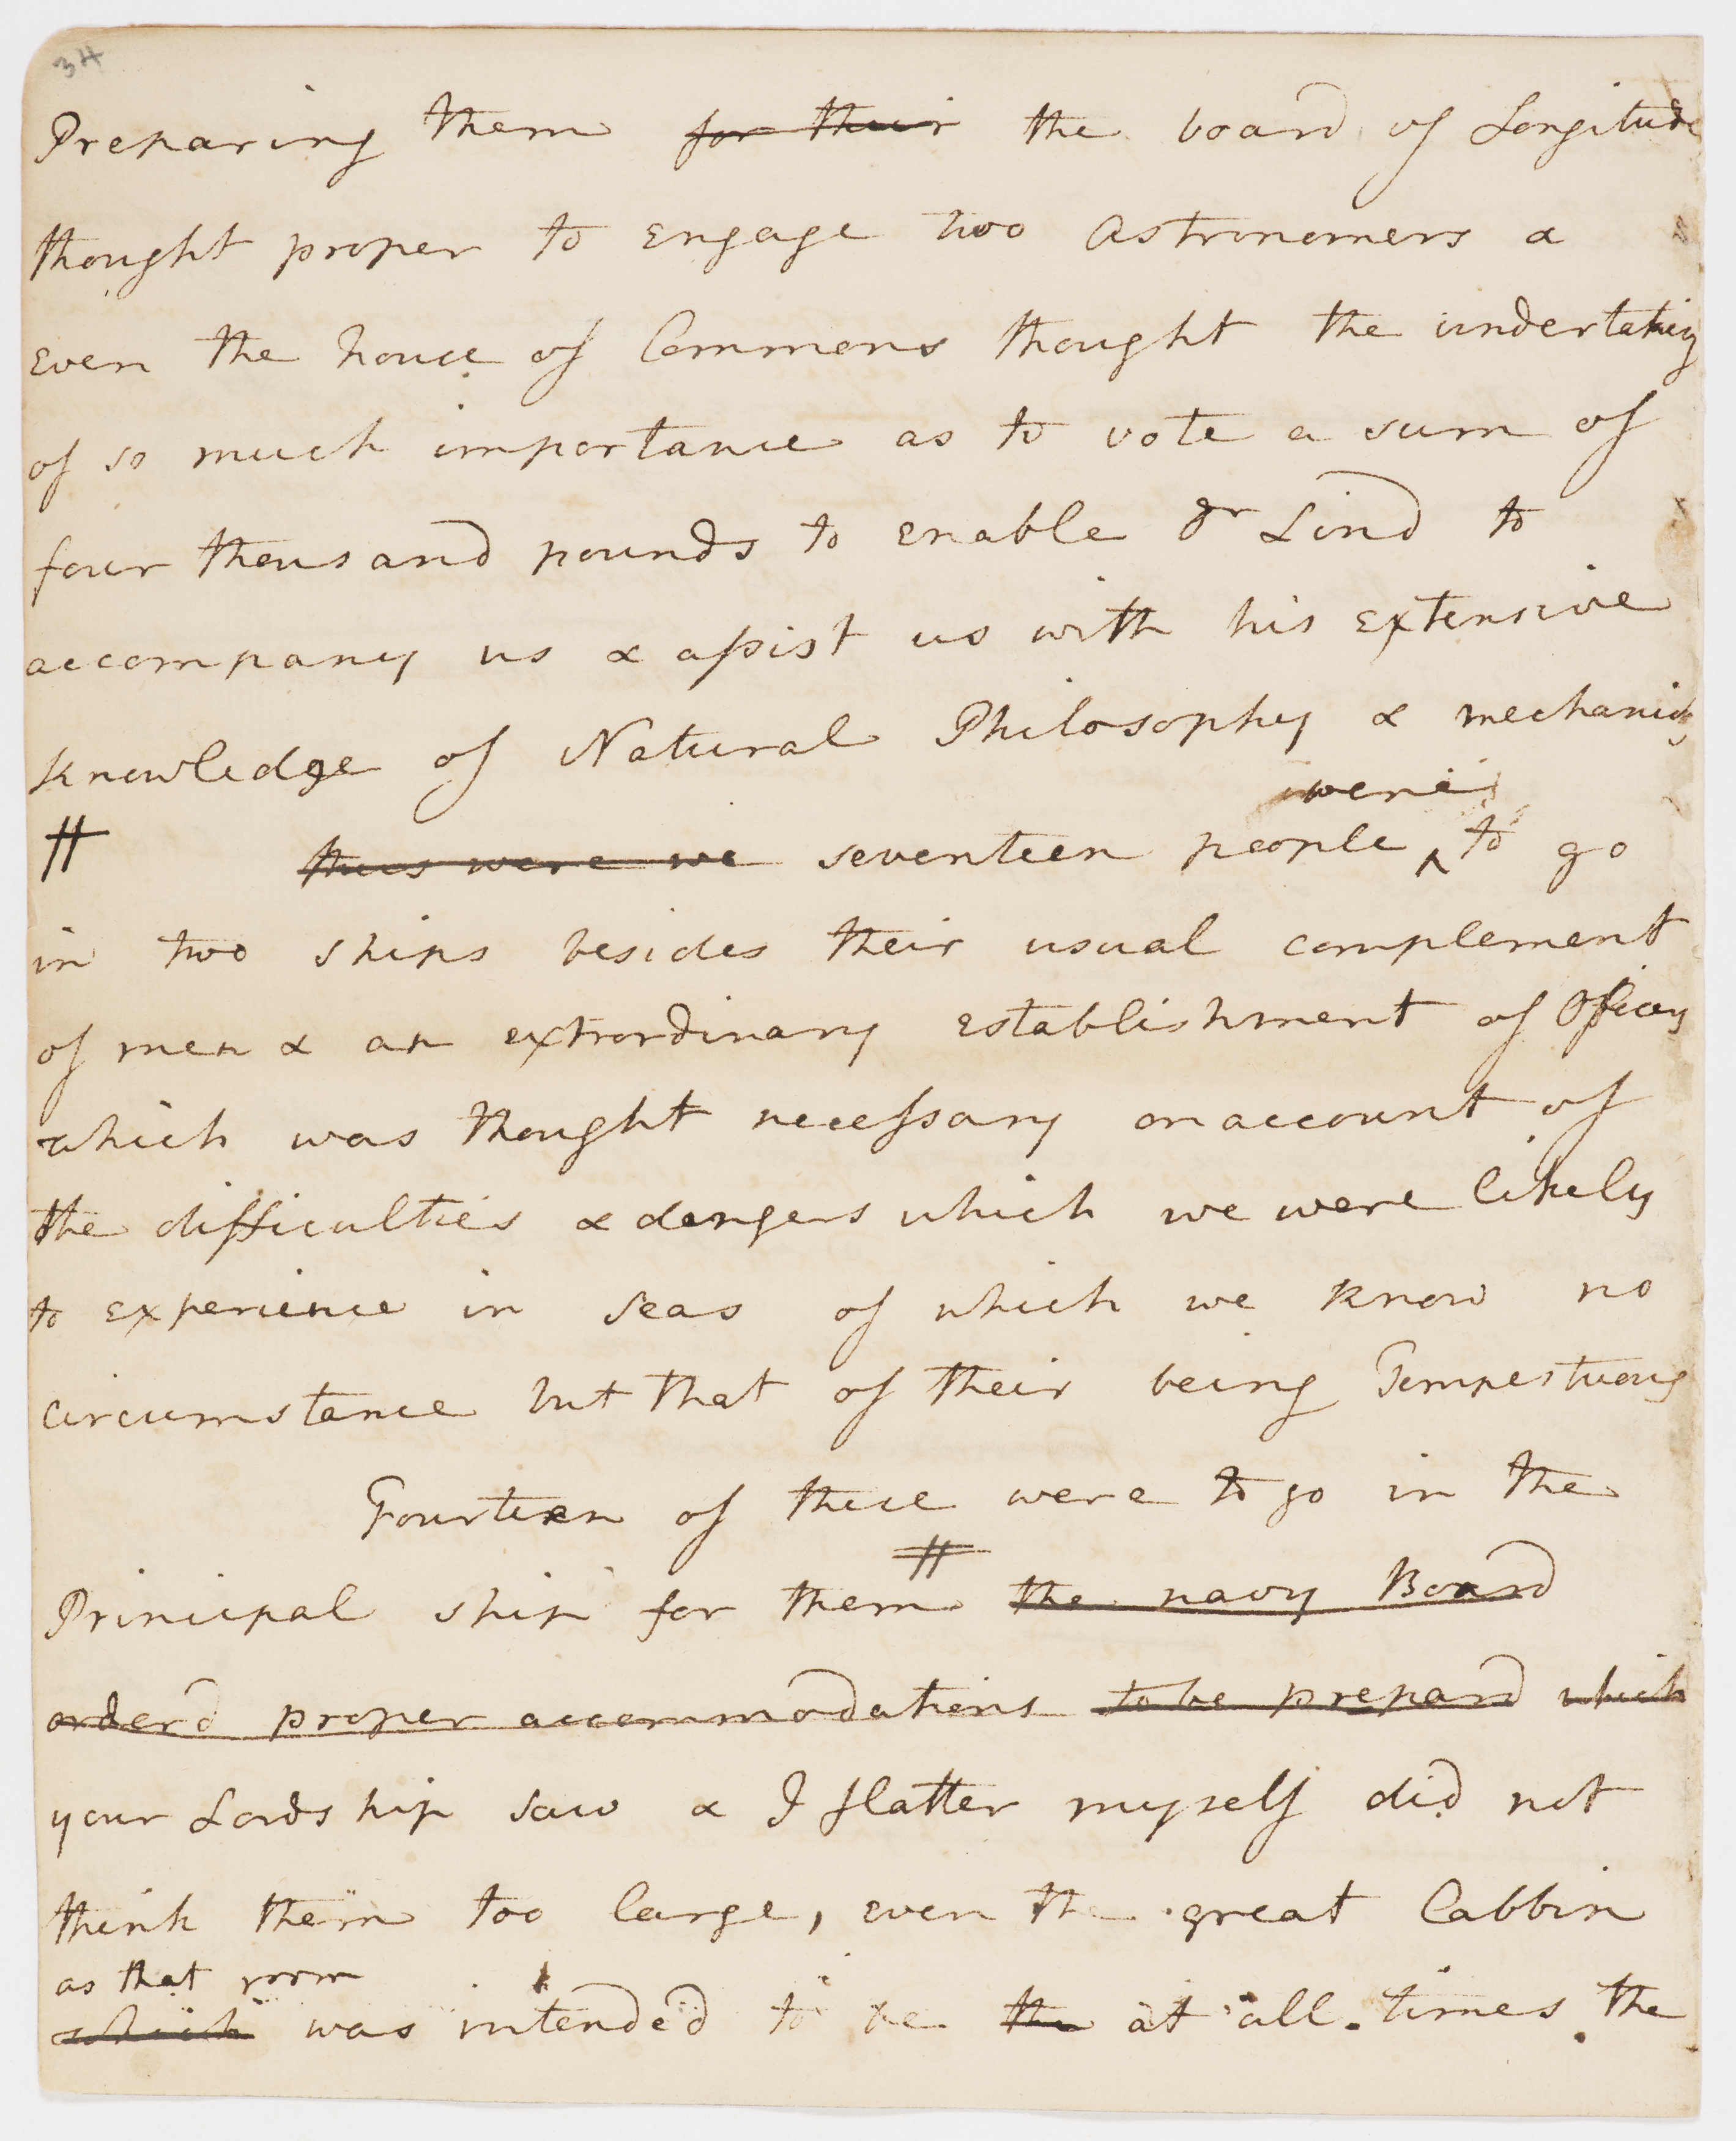 34
Preparing them for their the board of Longitude
thought proper to engage two Astronomers &
even the house of Commons thought the undertaking
of so much importance as to vote a sum of
four thousand pounds to enable dr Lind to
accompany us & assist us with his extensive
knowledge of Natural Philosophy & mechanicks
were
# thus were we seventeen people ^ to go
in two ships besides their usual complement
of men & an extrordinary establishment of Officers
which was thought necessary on account of
the difficulties & dangers which we were likely
to experience in seas of which we know no
circumstance but that of their being Tempestuous
Fourteen of these were to go in the
#
Principal ship for them the navy Board
orderd proper accommodations to be prepard which
your Lordship saw & I flatter myself did not
think them too large, even the great Cabbin
as that room
which was intended to be the at all times the